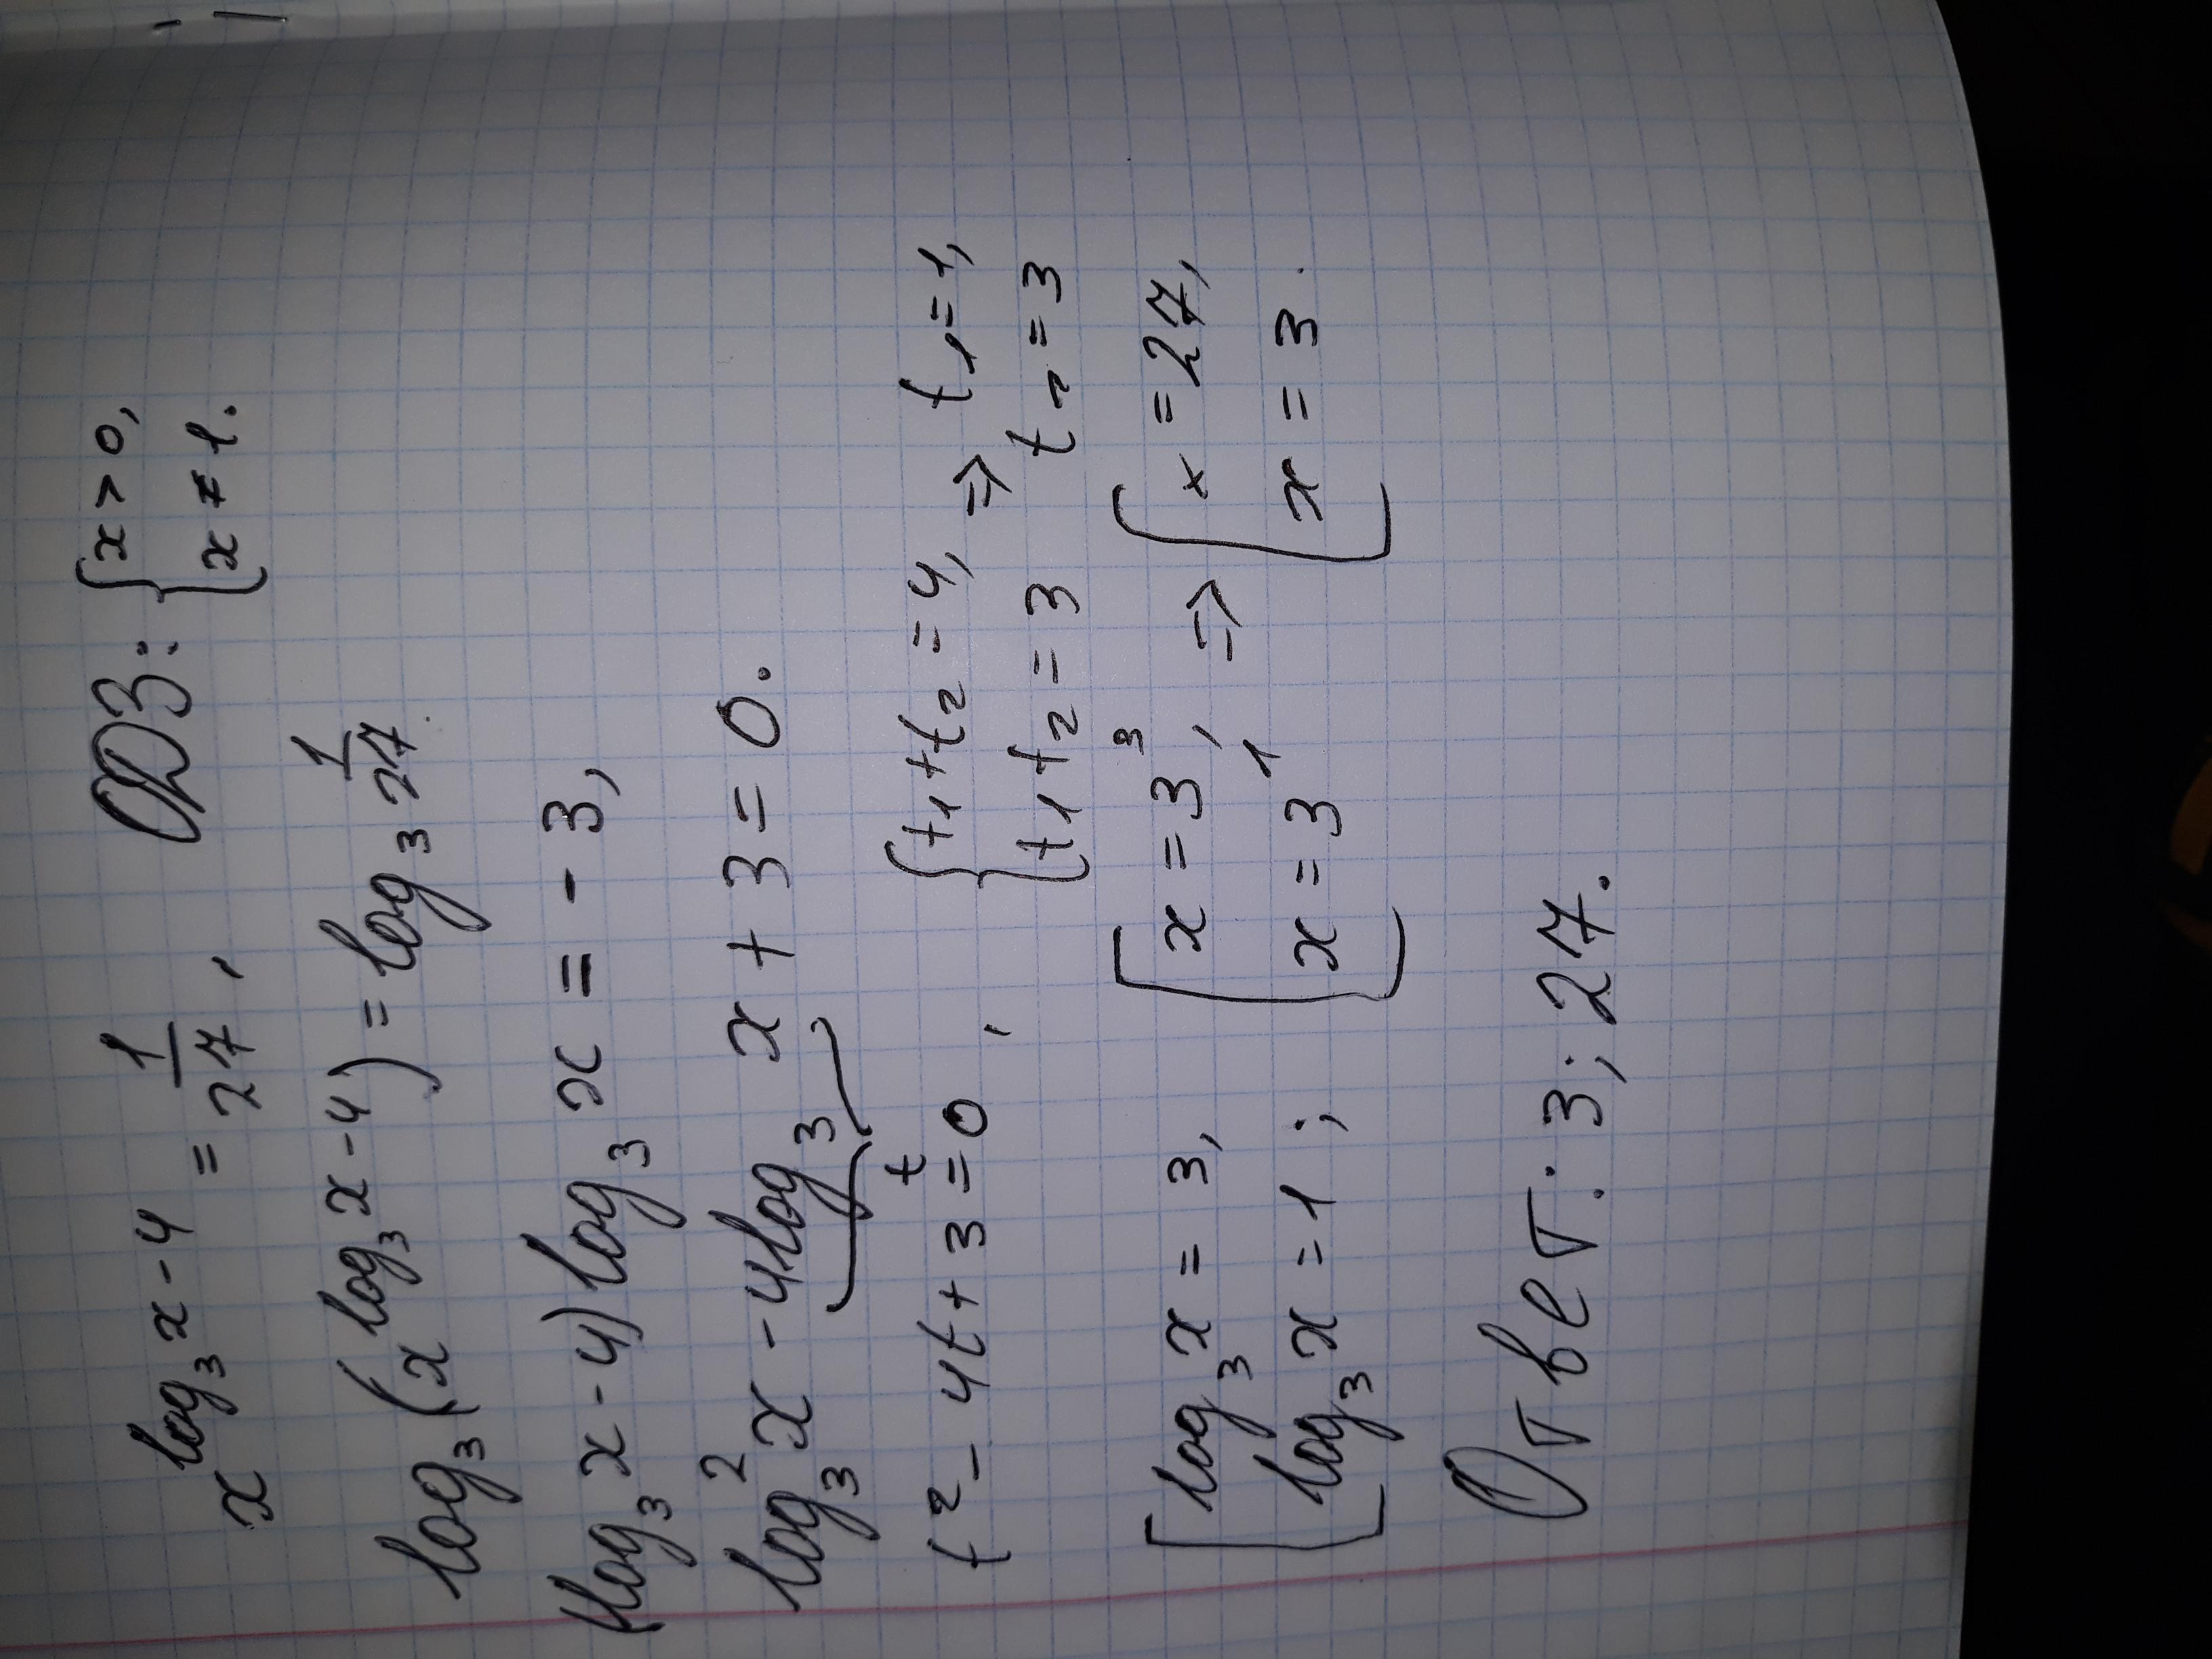 x^{log_3 x - 4} = 1/27 , ОДЗ: { x > 0, x ≠ 1.
log_3 (x^{log_3 x - 4}) = log_3 1/27
(log_3 x - 4) log_3 x = -3,
log_3^2 x - 4 log_3 x + 3 = 0.
t
t^2 - 4t + 3 = 0 , { t_1 + t_2 = 4, t_1 t_2 = 3 => t_1 = 1, t_2 = 3
[ log_3 x = 3, log_3 x = 1; [ x = 3^3, x = 3^1 => [ x = 27, x = 3.
Ответ: 3; 27.